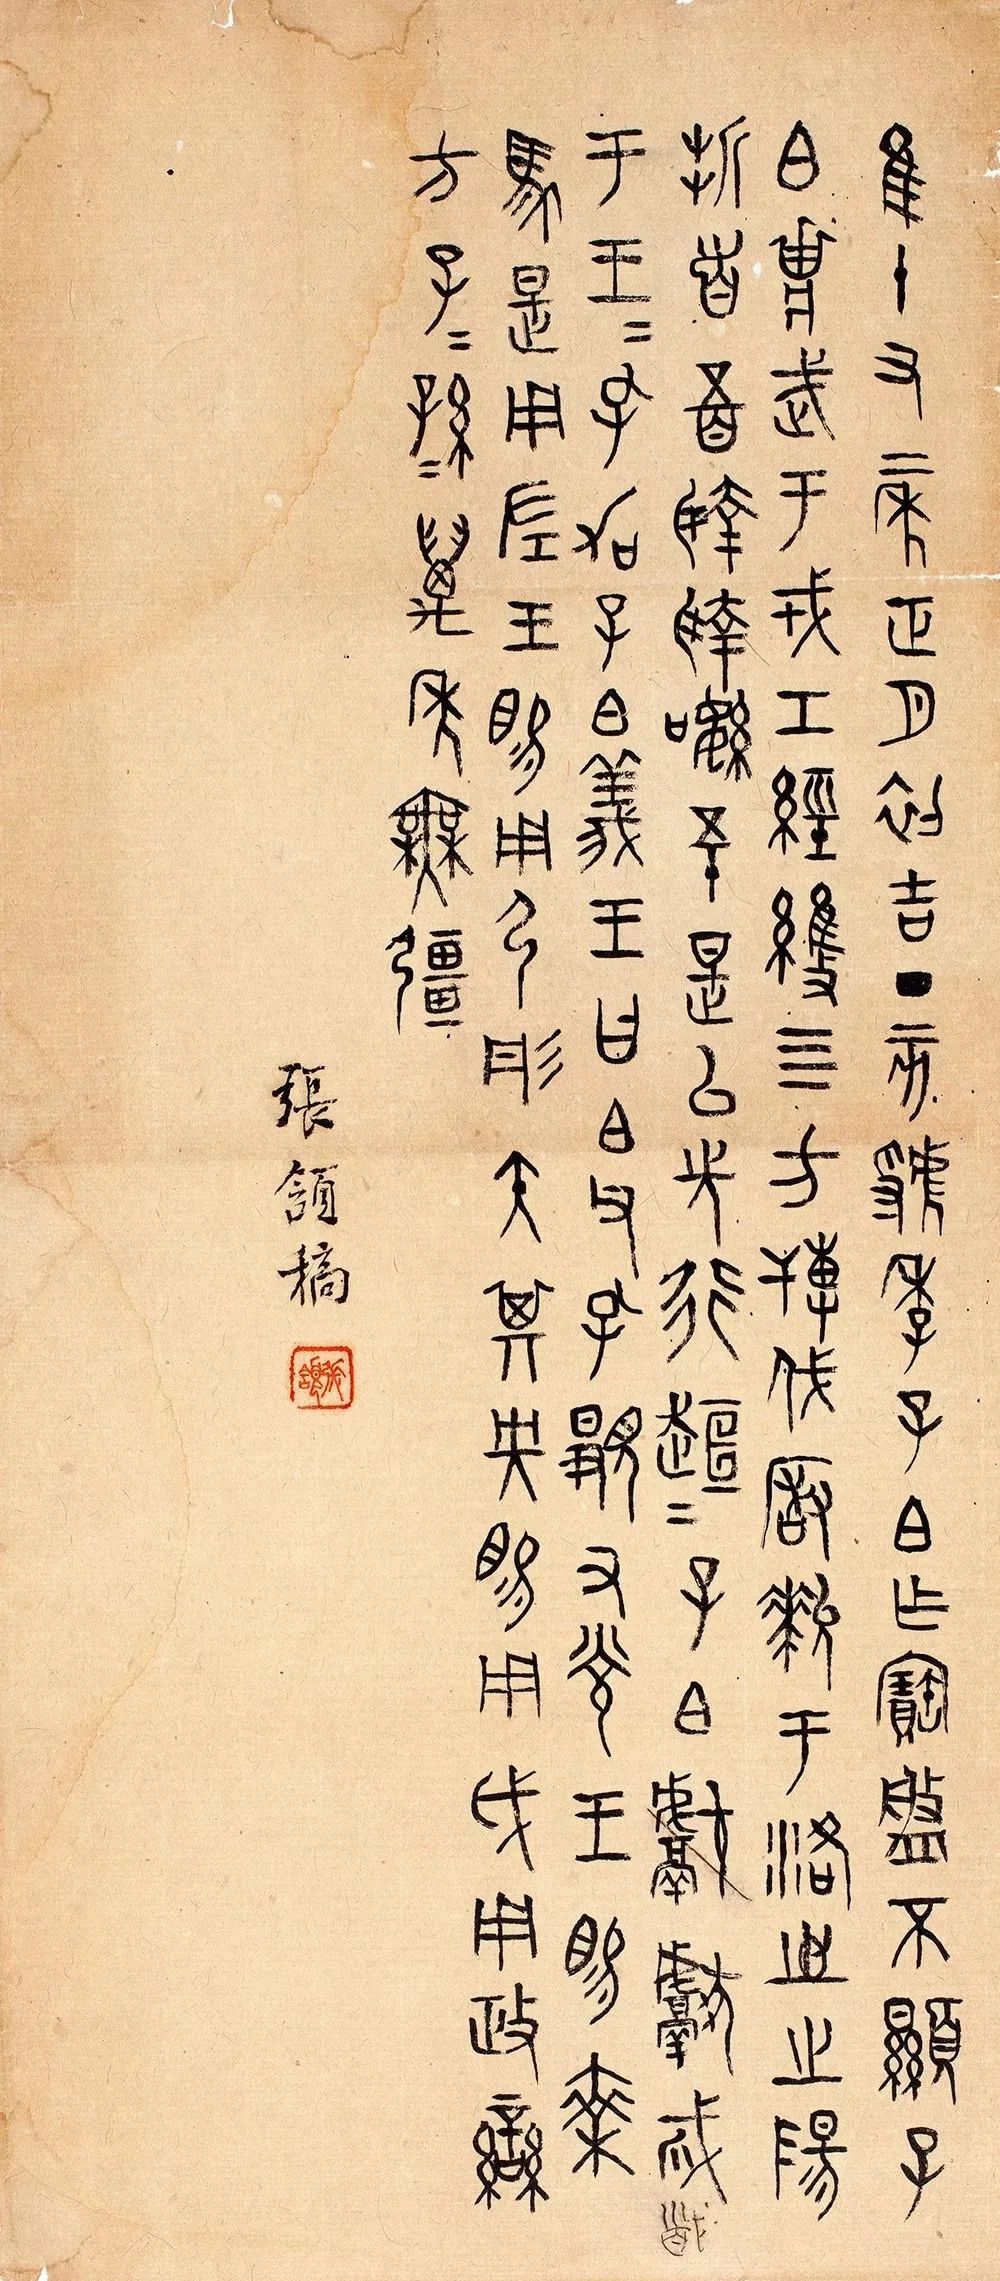 隹十又二年正月初吉丁亥虢季子白乍寶盤不顯子
白壯武于戎工經維四方搏伐厰𤞤于洛之陽
折首五百執執訊五十是以先行趄=子白獻獻馘
于王=孔加子白義王曰白父孔顯又光王賜乘
馬是用左王賜用弓彤矢其央賜用戉用政蠻
方子=孫=萬年無疆
張頷稿
張頷